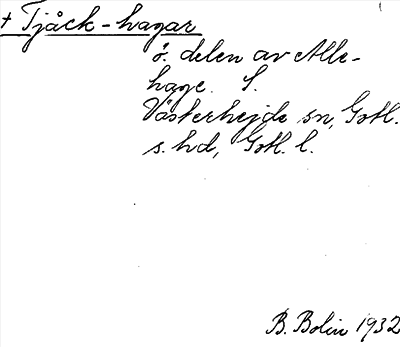 + Tjäck-hagar
ö. delen av Alle-
hage. S.
Västerhejde sn, Gotl.
s. hd, Gotl. l.
B. Bolin 1932